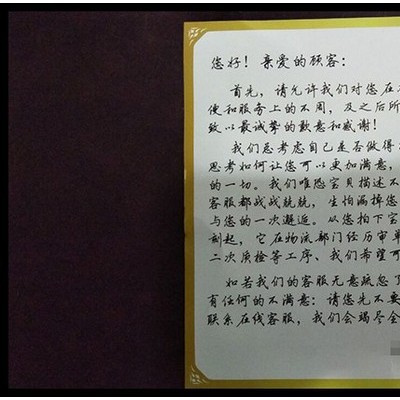 您好！亲爱的顾客：
首先，请允许我们对您在
便和服务上的不周，及之后所
致以最诚挚的歉意和感谢！
我们总考虑自己是否做得
思考如何让您可以更加满意，
的一切。我们唯恐宝贝描述不
客服都战战兢兢，生怕漏掉您
与您的一次邂逅。从您拍下宝
刻起，它在物流部门经历审单
二次质检等工序、我们希望可
如若我们的客服无意疏忽了
有任何的不满意：请您先不要
联系在线客服，我们会竭尽全